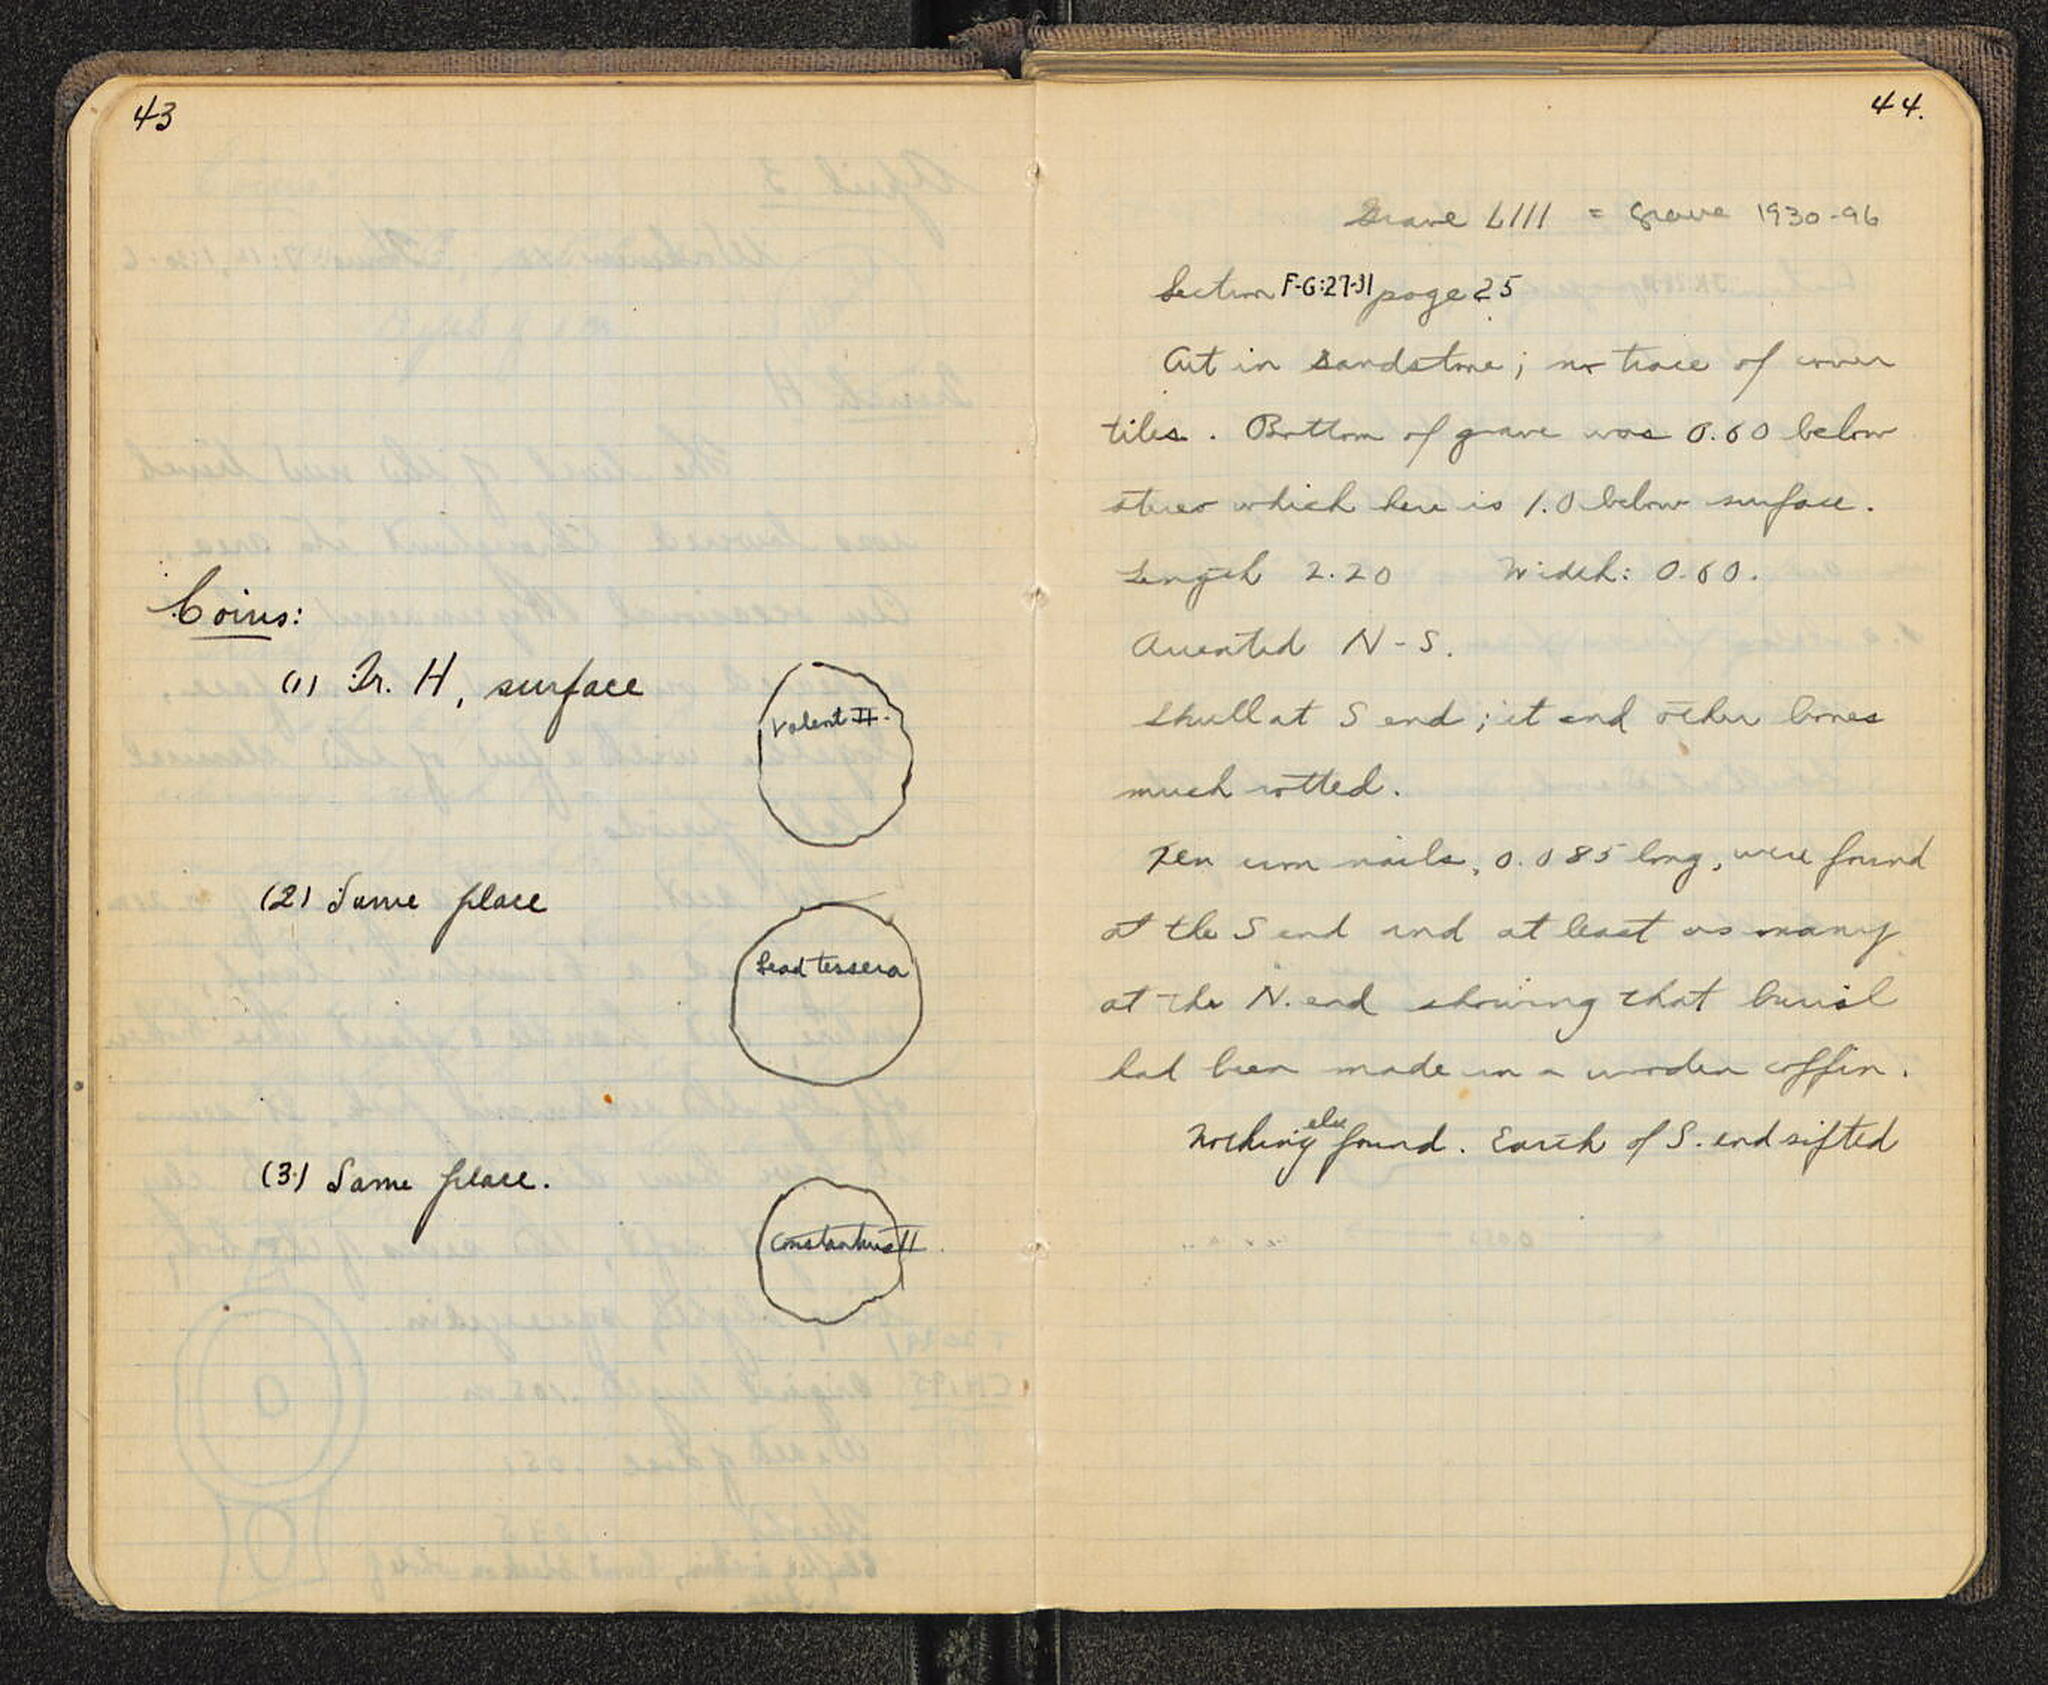 43
Coins:
(1) Tr. H, surface
Valent II.
(2) Same place
Lead tessera
(3) Same place.
Constantius II
44.
Grave LIII = grave 1930-96
Section F-G:27-31 page 25
Cut in sandstone; no trace of cover
tiles. Bottom of grave was 0.60 below
stereo which here is 1.0 below surface.
Length 2.20 Width: 0.60.
Oriented N-S.
Skull at S end; it and other bones
much rotted.
Ten iron nails, 0.085 long, were found
at the S end and at least as many
at the N. end showing that burial
had been made in a wooden coffin.
Nothing else found. Earth of S. end sifted